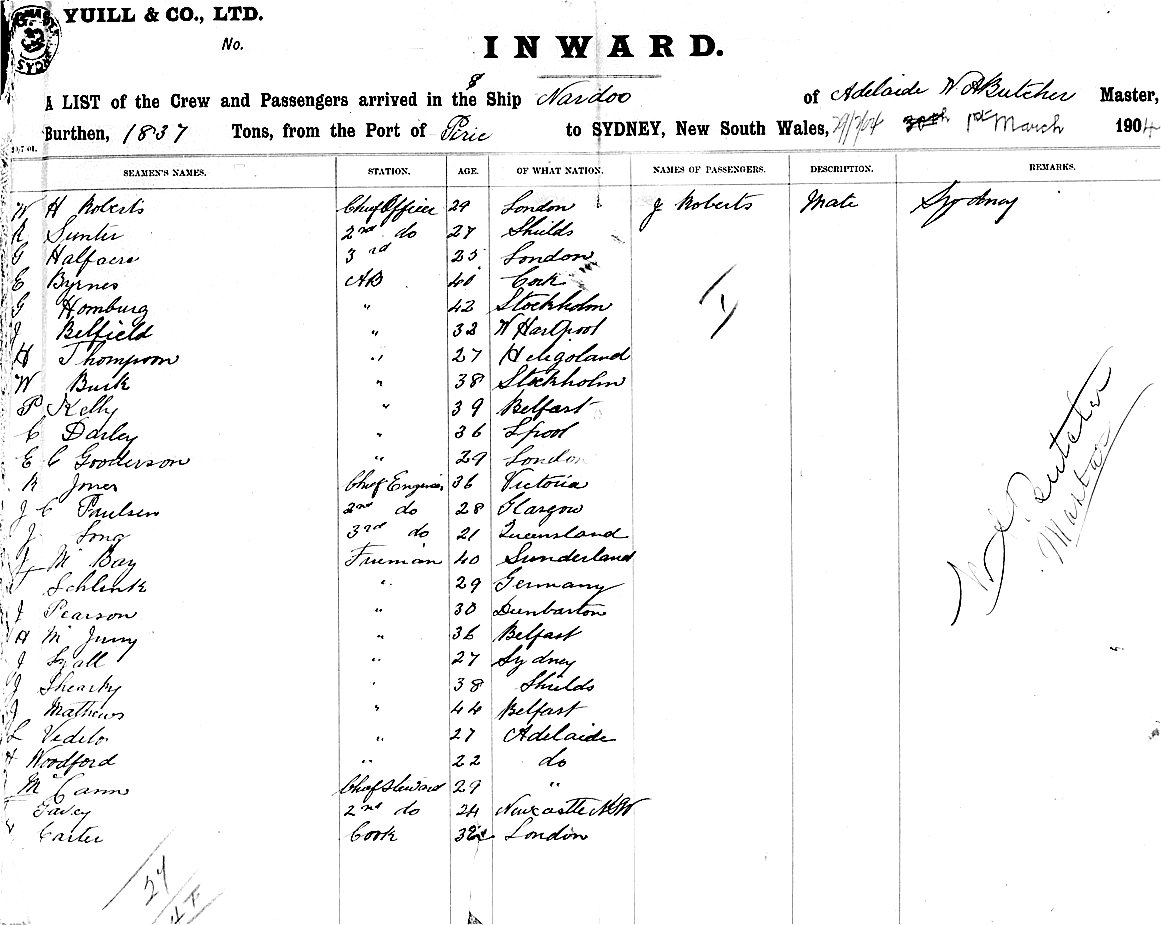 YUILL & CO., LTD.
No.
INWARD.
A LIST of the Crew and Passengers arrived in the S Ship Nardoo of Adelaide W A Butcher Master,
Burthen, 1837 Tons, from the Port of Pirie to SYDNEY, New South Wales, 29/2/04 1st March 1904
SEAMEN'S NAMES. STATION. AGE. OF WHAT NATION. NAMES OF PASSENGERS. DESCRIPTION. REMARKS.
W H Roberts Chief Officer 29 London J Roberts Mate Sydney
R Sunter 2nd do 27 Shields
G Halfacre 3rd 25 London
E Byrnes AB 40 Cork
G Homburg " 42 Stockholm
J Belfield " 32 W Hartpool
H Thompson " 27 Heligoland
W Burk " 38 Stockholm
P Kelly " 39 Belfast
C Darley " 36 Lpool
E C Gooderson " 29 London
R Jones Chief Engineer 36 Victoria
J C Paulsen 2nd do 28 Glasgow
J Long 3rd do 21 Queensland
J Mc Bay Fireman 40 Sunderland
Schlink " 29 Germany
J Pearson " 30 Dunbarton
H Mc Jury " 36 Belfast
J Lyall " 27 Sydney
J Shearby " 38 Shields
J Mathews " 44 Belfast
L Vedelo " 27 Adelaide
Woodford " 22 do
Mc Cann Chief Steward 29 "
Favey 2nd do 24 Newcastle NSW
Carter Cook 32 London
W A Butcher
Master
27